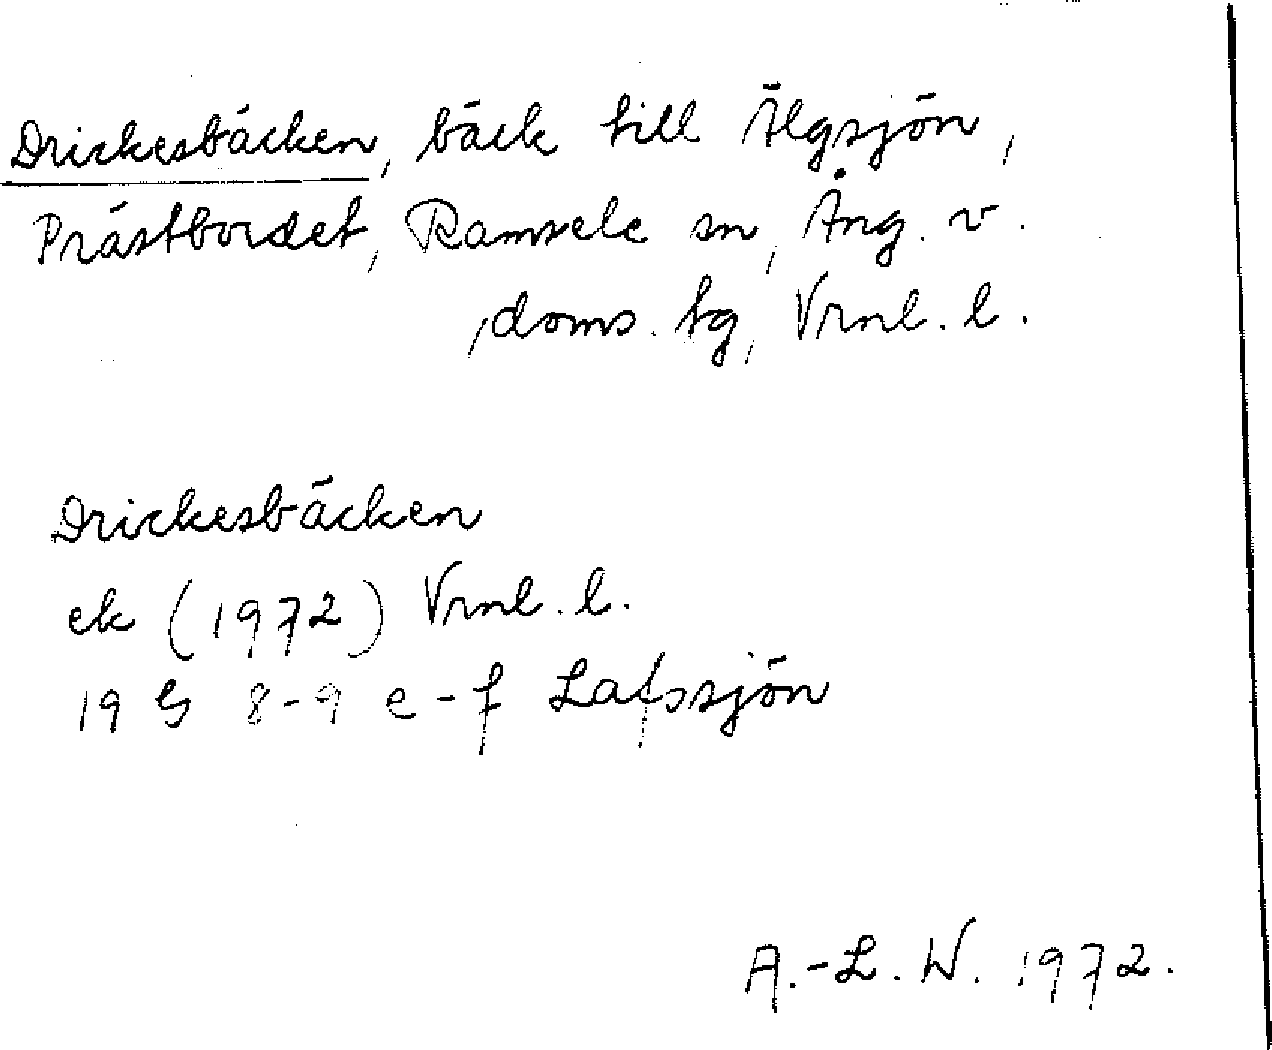 Drickesbäcken, bäck till Älgsjön,
Prästbordet, Ramsele sn, Ång. v.
doms. tg, Vrnl. l.
Drickesbäcken
ek (1972) Vrnl. l.
19 G 8-9 e-f Lafssjön
A.-L. W. 1972.